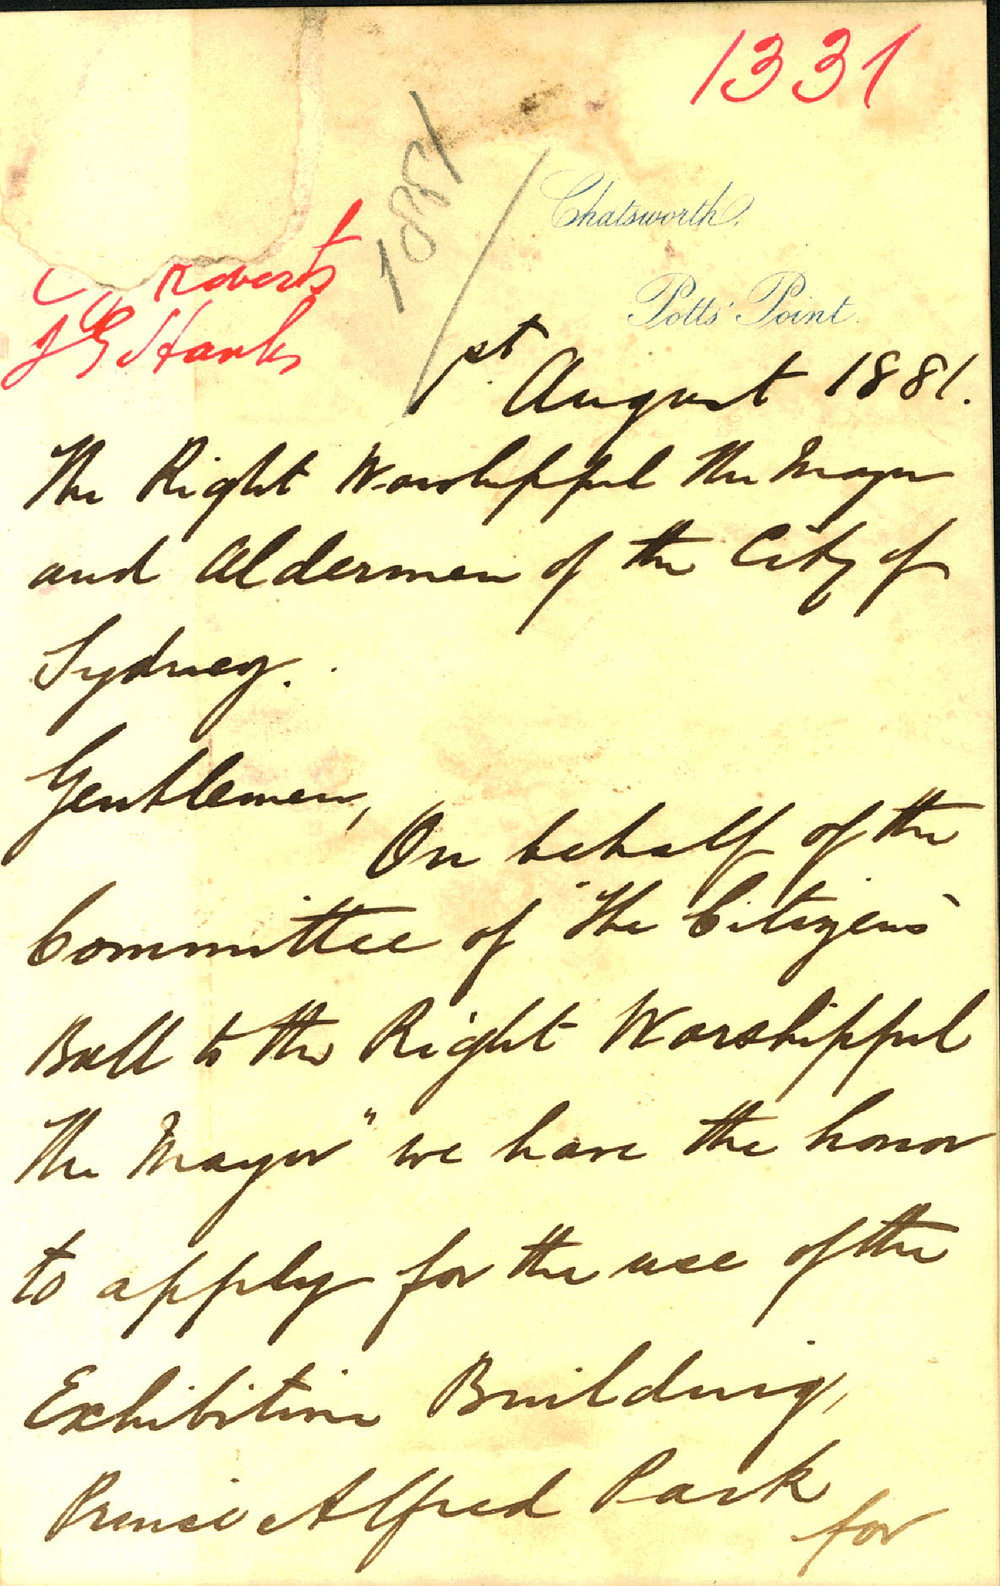 1331
1881
Chatsworth.
Potts' Point.
C Roberts
J G Hanks
1st August 1881.
The Right Worshipful the Mayor
and Aldermen of the City of
Sydney.
Gentlemen,
On behalf of the
Committee of "The Citizens'
Ball to the Right Worshipful
the Mayor" we have the honor
to apply for the use of the
Exhibition Building,
Prince Alfred Park
for